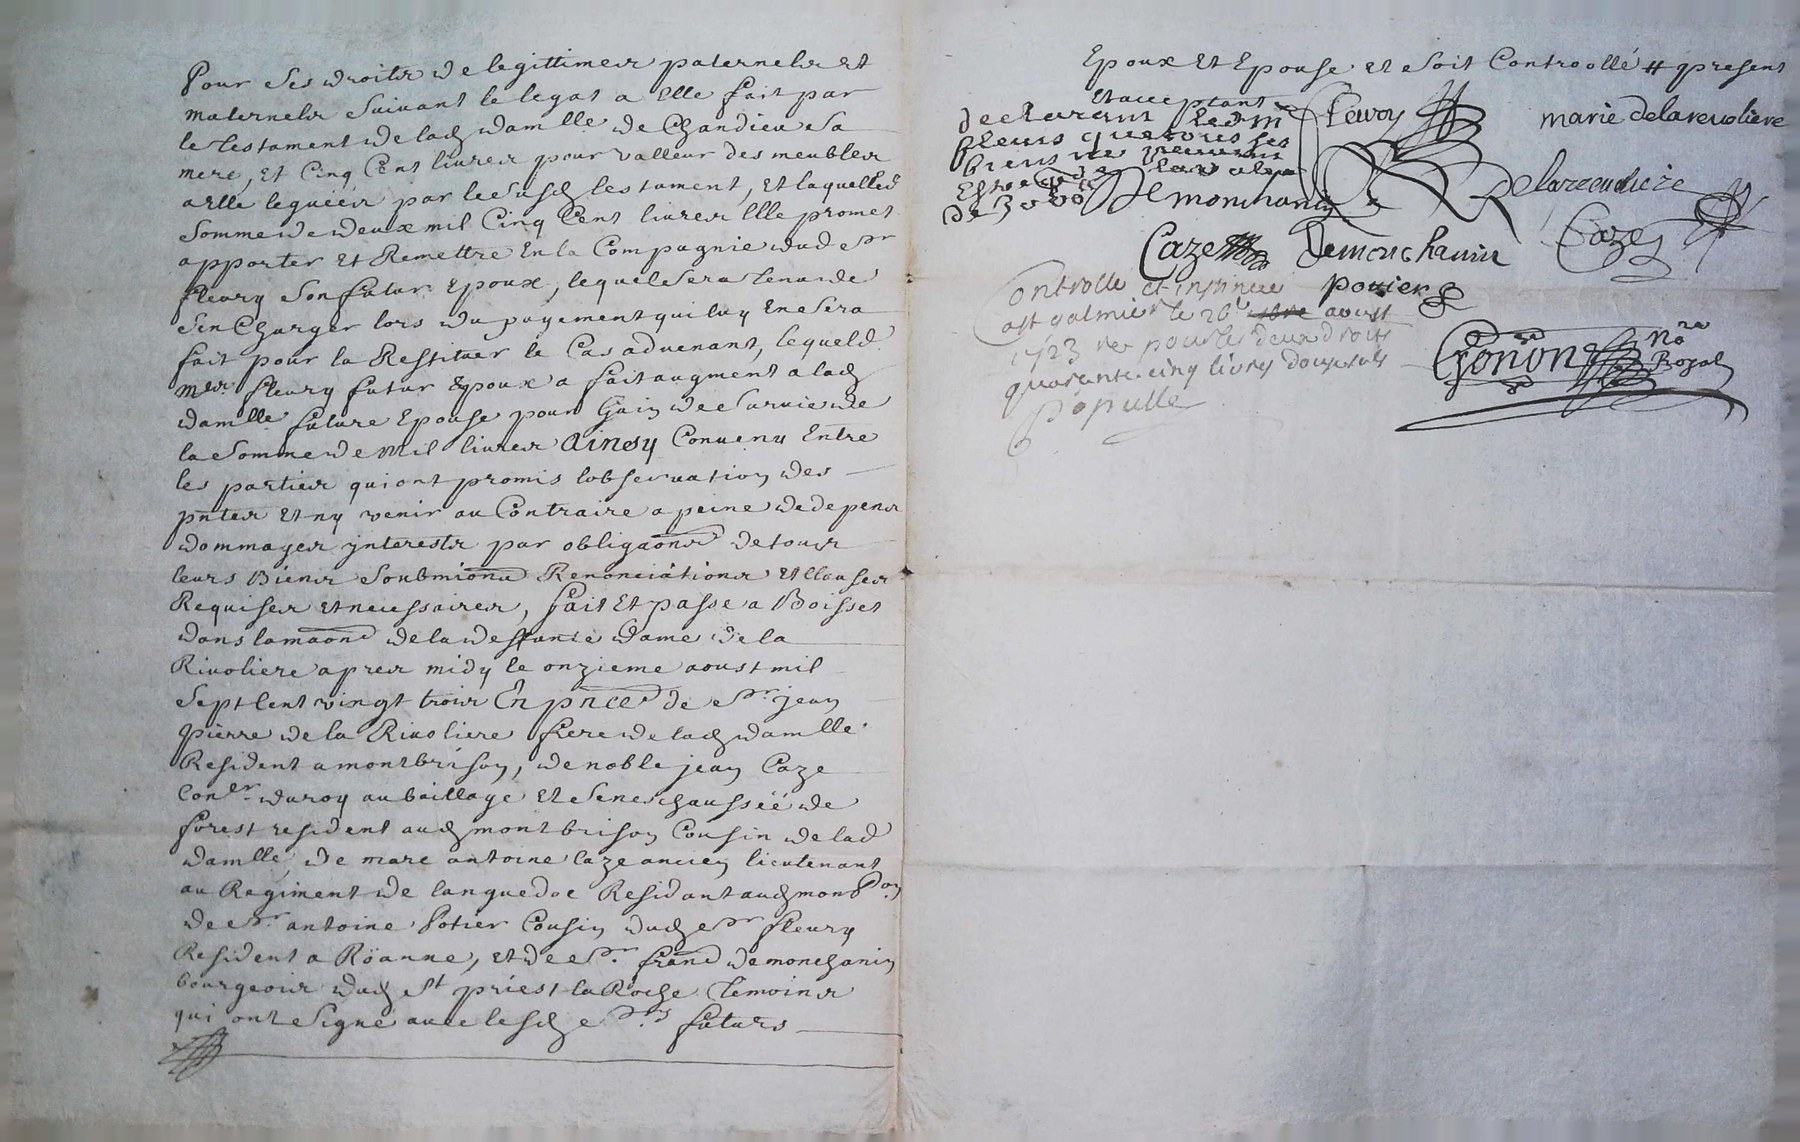 Pour ses droits de legittimes paternels et
maternels suivant le legat a Elle fait par
le testament de lad damlle de Chandieu sa
mere, et Cinq Cent livres pour valleur des meubles
a Elle leguées par le susd testament, et laquelle
somme de deux mil Cinq Cent livres Elle promet
apporter et Remettre En la Compagnie dud sr
fleury son futur Epoux, lequel sera tenu de
sen Charger lors du payement qui luy En sera
fait pour la Restituer le Cas advenant, lequeld
fleury futur Epoux a fait augment a lad
damlle future Epouse pour Gain de survie de
la somme de Mil livres Ainsy Convenu Entre
les parties qui ont promis lobservation des
pntes Et ny venir au Contraire a peine de depens
dommages jnterests par obligaons de tous
leurs Biens soubmions Renonciations et Clauses
Requises et necessaires, fait Et passe a Boisset
dans la maon de la deffunte dame de la
Rivoliere apres midy le onzieme aoust mil
sept Cent vingt trois En pnce de sr jean
pierre de la Rivoliere frere de lad damlle
Resident a montbrison, de noble jean Caze
Coner du roy au baillage et seneschaussëë de
forest resident aud montbrison Cousin de lad
damlle, de marc antoine Caze ancien lieutenant
au Regiment de languedoc Residant aud montbon
de sr antoine Potier Cousin dud sr fleury
Resident a Röanne, et de sr franc demonchanin
bourgeois dud st priest la Roche temoins
qui ont signé avec lesd srs futurs
Epoux Et Epouse et soit Controollé # present
Et acceptant
declarant
pleurs que tous ses
biens ne
de 3000
fleury
marie delarevoliere
Demonchanin
Delarevoliere
Caze
Demonchanin
Caze
Controlle et insinué
potier
a st galmier le 26e aoust
1723 re pour les deux droits
quarante cinq livres douze sols
populle
Gonon
No
Royal